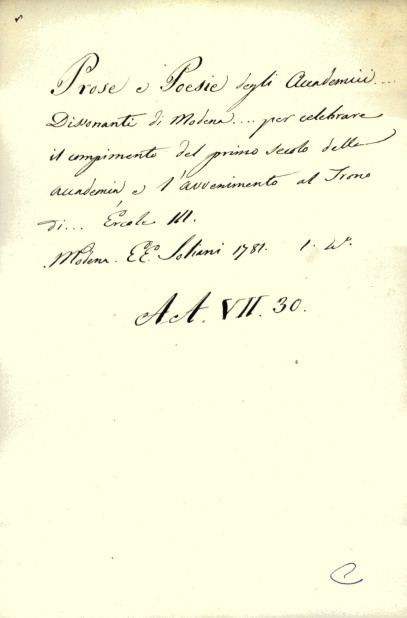 Prose e Poesie degli Accademici....
Dissonanti di Modena.... per celebrare
il compimento del primo secolo della
accademia e l'avvenimento al Trono
di... Ercole III.
Modena. EE. Soliani 1781. 1. 4°.
AA. VII. 30.